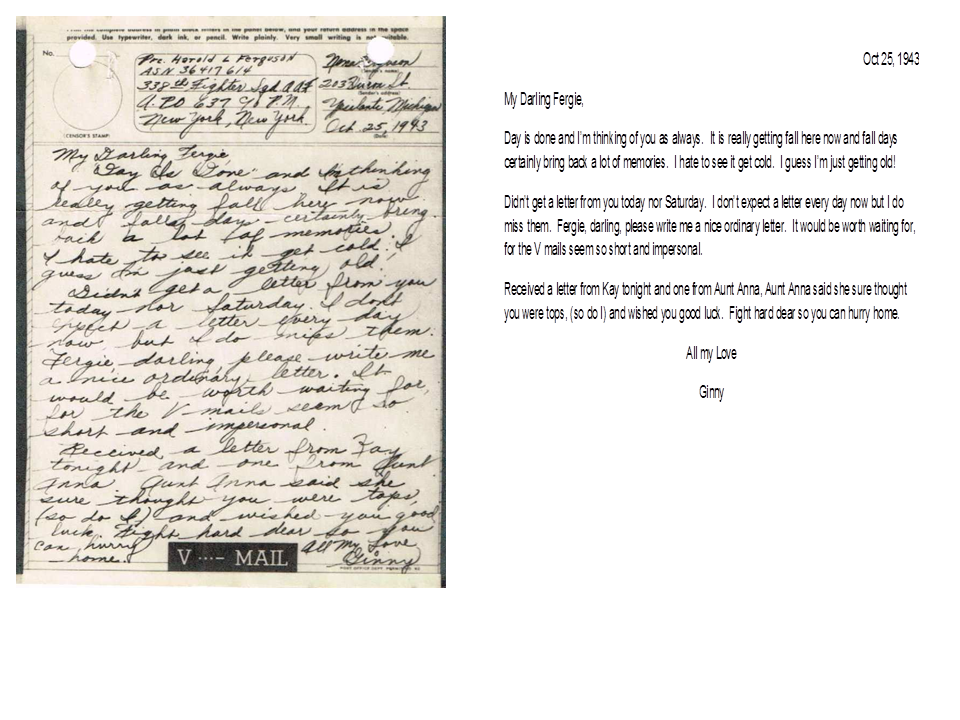 provided. Use typewriter, dark ink, or pencil. Write plainly. Very small writing is not suitable.
No.
Pvc. Harold L Ferguson
ASN 36417614
338th Fighter Sqd AAF
A.P.O 637 c/o P.M.
New York, New York.
(Sender's name)
203 St.
(Sender's address)
Ypsilanti, Michigan
Oct. 25, 1943
(Date)
(CENSOR'S STAMP)
My Darling Fergie,
"Day Is Done" and I'm thinking
of you as always. It is
really getting fall here now
and fall days certainly bring
back a lot of memories.
I hate to see it get cold. I
guess I'm just getting old!
Didn't get a letter from you
today nor Saturday. I don't
expect a letter every day
now but I do miss them.
Fergie darling please write me
a nice ordinary letter. It
would be worth waiting for,
for the V-mails seem so
short and impersonal.
Received a letter from Kay
tonight and one from Aunt
Anna. Aunt Anna said she
sure thought you were tops,
(so do I) and wished you good
luck. Fight hard dear so you
can hurry
home.
All my Love
Ginny
V ···– MAIL
Oct 25, 1943
My Darling Fergie,
Day is done and I'm thinking of you as always. It is really getting fall here now and fall days
certainly bring back a lot of memories. I hate to see it get cold. I guess I'm just getting old!
Didn't get a letter from you today nor Saturday. I don't expect a letter every day now but I do
miss them. Fergie, darling, please write me a nice ordinary letter. It would be worth waiting for,
for the V mails seem so short and impersonal.
Received a letter from Kay tonight and one from Aunt Anna, Aunt Anna said she sure thought
you were tops, (so do I) and wished you good luck. Fight hard dear so you can hurry home.
All my Love
Ginny